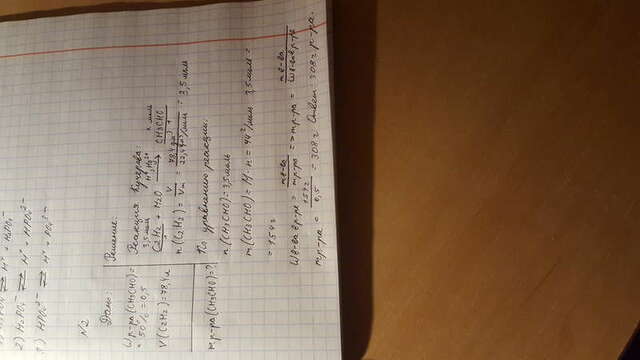 2) H₂PO₄⁻ ⇄ H⁺ + HPO₄²⁻
3) HPO₄²⁻ ⇄ H⁺ + PO₄³⁻
N2
Дано:
Wр-ра(CH₃CHO)=
= 50% = 0,5
V(C₂H₂) = 78,4л
mр-ра(CH₃CHO)=?
Решение:
Реакция Кучерова:
3,5моль x моль
C₂H₂ + H₂O ⟶ CH₃CHO
H⁺, Hg²⁺
n(C₂H₂) = V/Vm = = 3,5 моль
По уравнению реакции:
n(CH₃CHO) = 3,5моль
m(CH₃CHO) = M · n = 44 г/моль · 3,5моль =
= 154г
Wв-ва в р-ре = mв-ва/mр-ра => mр-ра = mв-ва/Wв-ва в р-ре
mр-ра = 154г/0,5 = 308г Ответ: 308г р-ра.